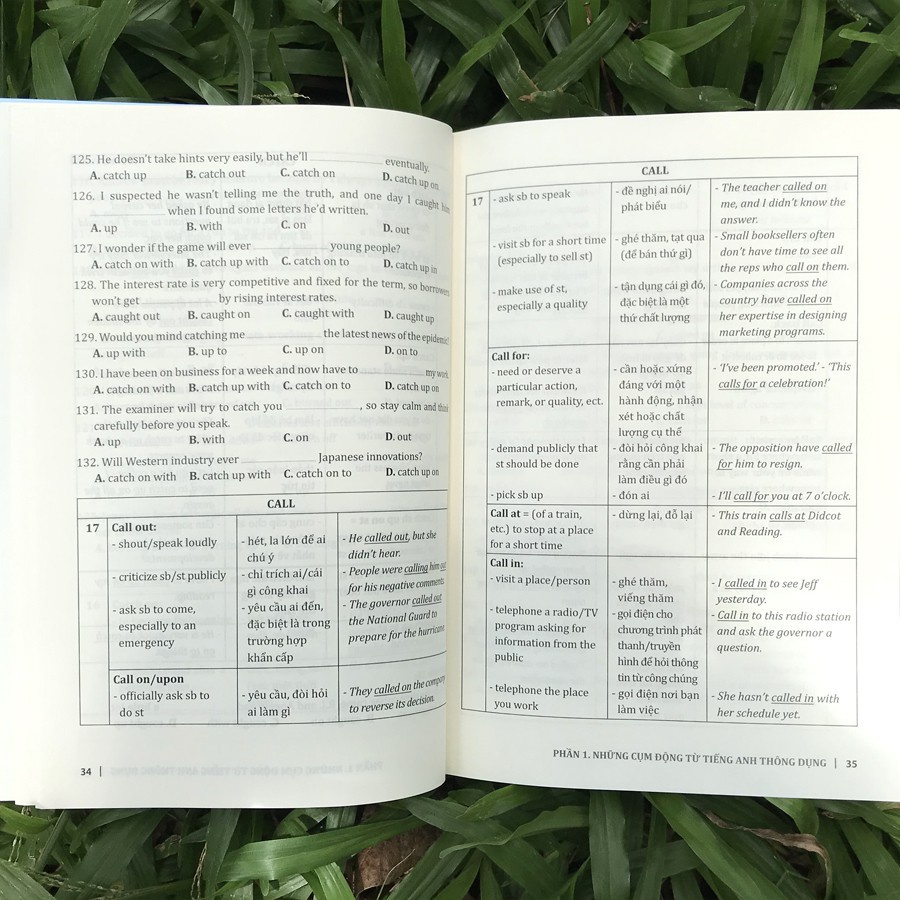 125. He doesn't take hints very easily, but he'll ____ eventually.
A. catch up B. catch out C. catch on D. catch up on
126. I suspected he wasn't telling me the truth, and one day I caught him
____ when I found some letters he'd written.
A. up B. with C. on D. out
127. I wonder if the game will ever ____ young people?
A. catch on with B. catch up with C. catch on to D. catch up in
128. The interest rate is very competitive and fixed for the term, so borrowers
won't get ____ by rising interest rates.
A. caught out B. caught on C. caught with D. caught up
129. Would you mind catching me ____ the latest news of the epidemic?
A. up with B. up to C. up on D. on to
130. I have been on business for a week and now have to ____ my work.
A. catch on with B. catch up with C. catch on to D. catch up on
131. The examiner will try to catch you ____, so stay calm and think
carefully before you speak.
A. up B. with C. on D. out
132. Will Western industry ever ____ Japanese innovations?
A. catch on with B. catch up with C. catch on to D. catch up on
CALL
17 Call out:
- shout/speak loudly - hét, la lớn để ai - He called out, but she
chú ý didn't hear.
- criticize sb/st publicly - chỉ trích ai/cái - People were calling him out
gì công khai for his negative comments.
- ask sb to come, - yêu cầu ai đến, - The governor called out
especially to an đặc biệt là trong the National Guard to
emergency trường hợp prepare for the hurricane.
khẩn cấp
Call on/upon
- officially ask sb to - yêu cầu, đòi hỏi - They called on the company
do st ai làm gì to reverse its decision.
34 |
CALL
17 - ask sb to speak - đề nghị ai nói/ - The teacher called on
phát biểu me, and I didn't know the
answer.
- visit sb for a short time - ghé thăm, tạt qua - Small booksellers often
(especially to sell st) (để bán thứ gì) don't have time to see all
the reps who call on them.
- make use of st, - tận dụng cái gì đó, - Companies across the
especially a quality đặc biệt là một country have called on
thứ chất lượng her expertise in designing
marketing programs.
Call for:
- need or deserve a - cần hoặc xứng - 'I've been promoted.' - 'This
particular action, đáng với một calls for a celebration!'
remark, or quality, ect. hành động, nhận
xét hoặc chất
lượng cụ thể
- demand publicly that - đòi hỏi công khai - The opposition have called
st should be done rằng cần phải for him to resign.
làm điều gì đó
- pick sb up - đón ai - I'll call for you at 7 o'clock.
Call at = (of a train, - dừng lại, đỗ lại - This train calls at Didcot
etc.) to stop at a place and Reading.
for a short time
Call in:
- visit a place/person - ghé thăm, - I called in to see Jeff
viếng thăm yesterday.
- telephone a radio/TV - gọi điện cho - Call in to this radio station
program asking for chương trình phát and ask the governor a
information from the thanh/truyền question.
public hình để hỏi thông
tin từ công chúng
- telephone the place - gọi điện nơi bạn - She hasn't called in with
you work làm việc her schedule yet.
PHẦN 1. NHỮNG CỤM ĐỘNG TỪ TIẾNG ANH THÔNG DỤNG | 35